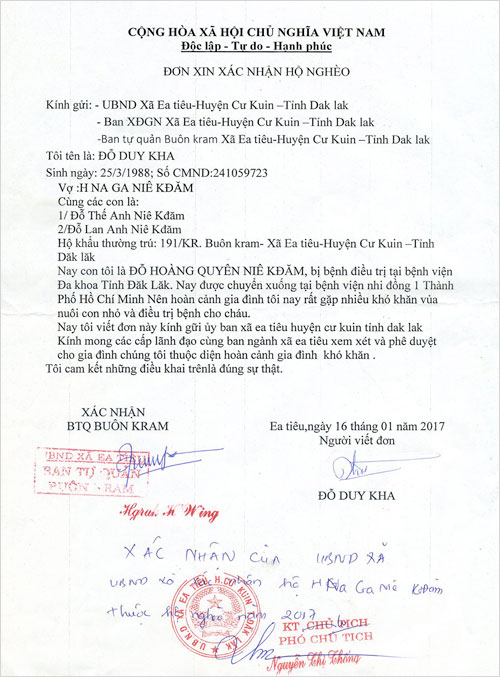 CỘNG HÒA XÃ HỘI CHỦ NGHĨA VIỆT NAM
Độc lập - Tự do - Hạnh phúc
ĐƠN XIN XÁC NHẬN HỘ NGHÈO
Kính gửi: - UBND Xã Ea tiêu-Huyện Cư Kuin –Tỉnh Dak lak
- Ban XĐGN Xã Ea tiêu-Huyện Cư Kuin –Tỉnh Dak lak
-Ban tự quản Buôn kram Xã Ea tiêu-Huyện Cư Kuin –Tỉnh Dak lak
Tôi tên là: ĐỖ DUY KHA
Sinh ngày: 25/3/1988; Số CMND:241059723
Vợ :H NA GA NIÊ KĐĂM
Cùng các con là:
1/ Đỗ Thế Anh Niê Kđăm
2/Đỗ Lan Anh Niê Kđăm
Hộ khẩu thường trú: 191/KR. Buôn kram- Xã Ea tiêu-Huyện Cư Kuin –Tỉnh
Dăk lăk
Nay con tôi là ĐỖ HOÀNG QUYÊN NIÊ KĐĂM, bị bệnh điều trị tại bệnh viện
Đa khoa Tỉnh Đăk Lăk. Nay được chuyển xuống tại bệnh viện nhi đồng 1 Thành
Phố Hồ Chí Minh Nên hoàn cảnh gia đình tôi nay rất gặp nhiều khó khăn vủa
nuôi con nhỏ và điều trị bệnh cho cháu.
Nay tôi viết đơn này kính gữi ủy ban xã ea tiêu huyện cư kuin tỉnh dak lak
Kính mong các cấp lãnh đạo cùng ban ngành xã ea tiêu xem xét và phê duyệt
cho gia đình chúng tôi thuộc diện hoàn cảnh gia đình khó khăn .
Tôi cam kết những điều khai trênlà đúng sự thật.
XÁC NHẬN
BTQ BUÔN KRAM
Ea tiêu,ngày 16 tháng 01 năm 2017
Người viết đơn
UBND XÃ EA TIÊU
BAN TỰ QUẢN
BUÔN KRAM
ĐỖ DUY KHA
Wing
XÁC NHẬN CỦA UBND XÃ
UBND xã hộ H Na Ga Niê Kđăm
thuộc hộ nghèo năm 2017
U.B.N.D XÃ EA TIÊU H.CƯ KUIN T.ĐĂK LĂK
KT. CHỦ TỊCH
PHÓ CHỦ TỊCH
Nguyễn Thị Thông